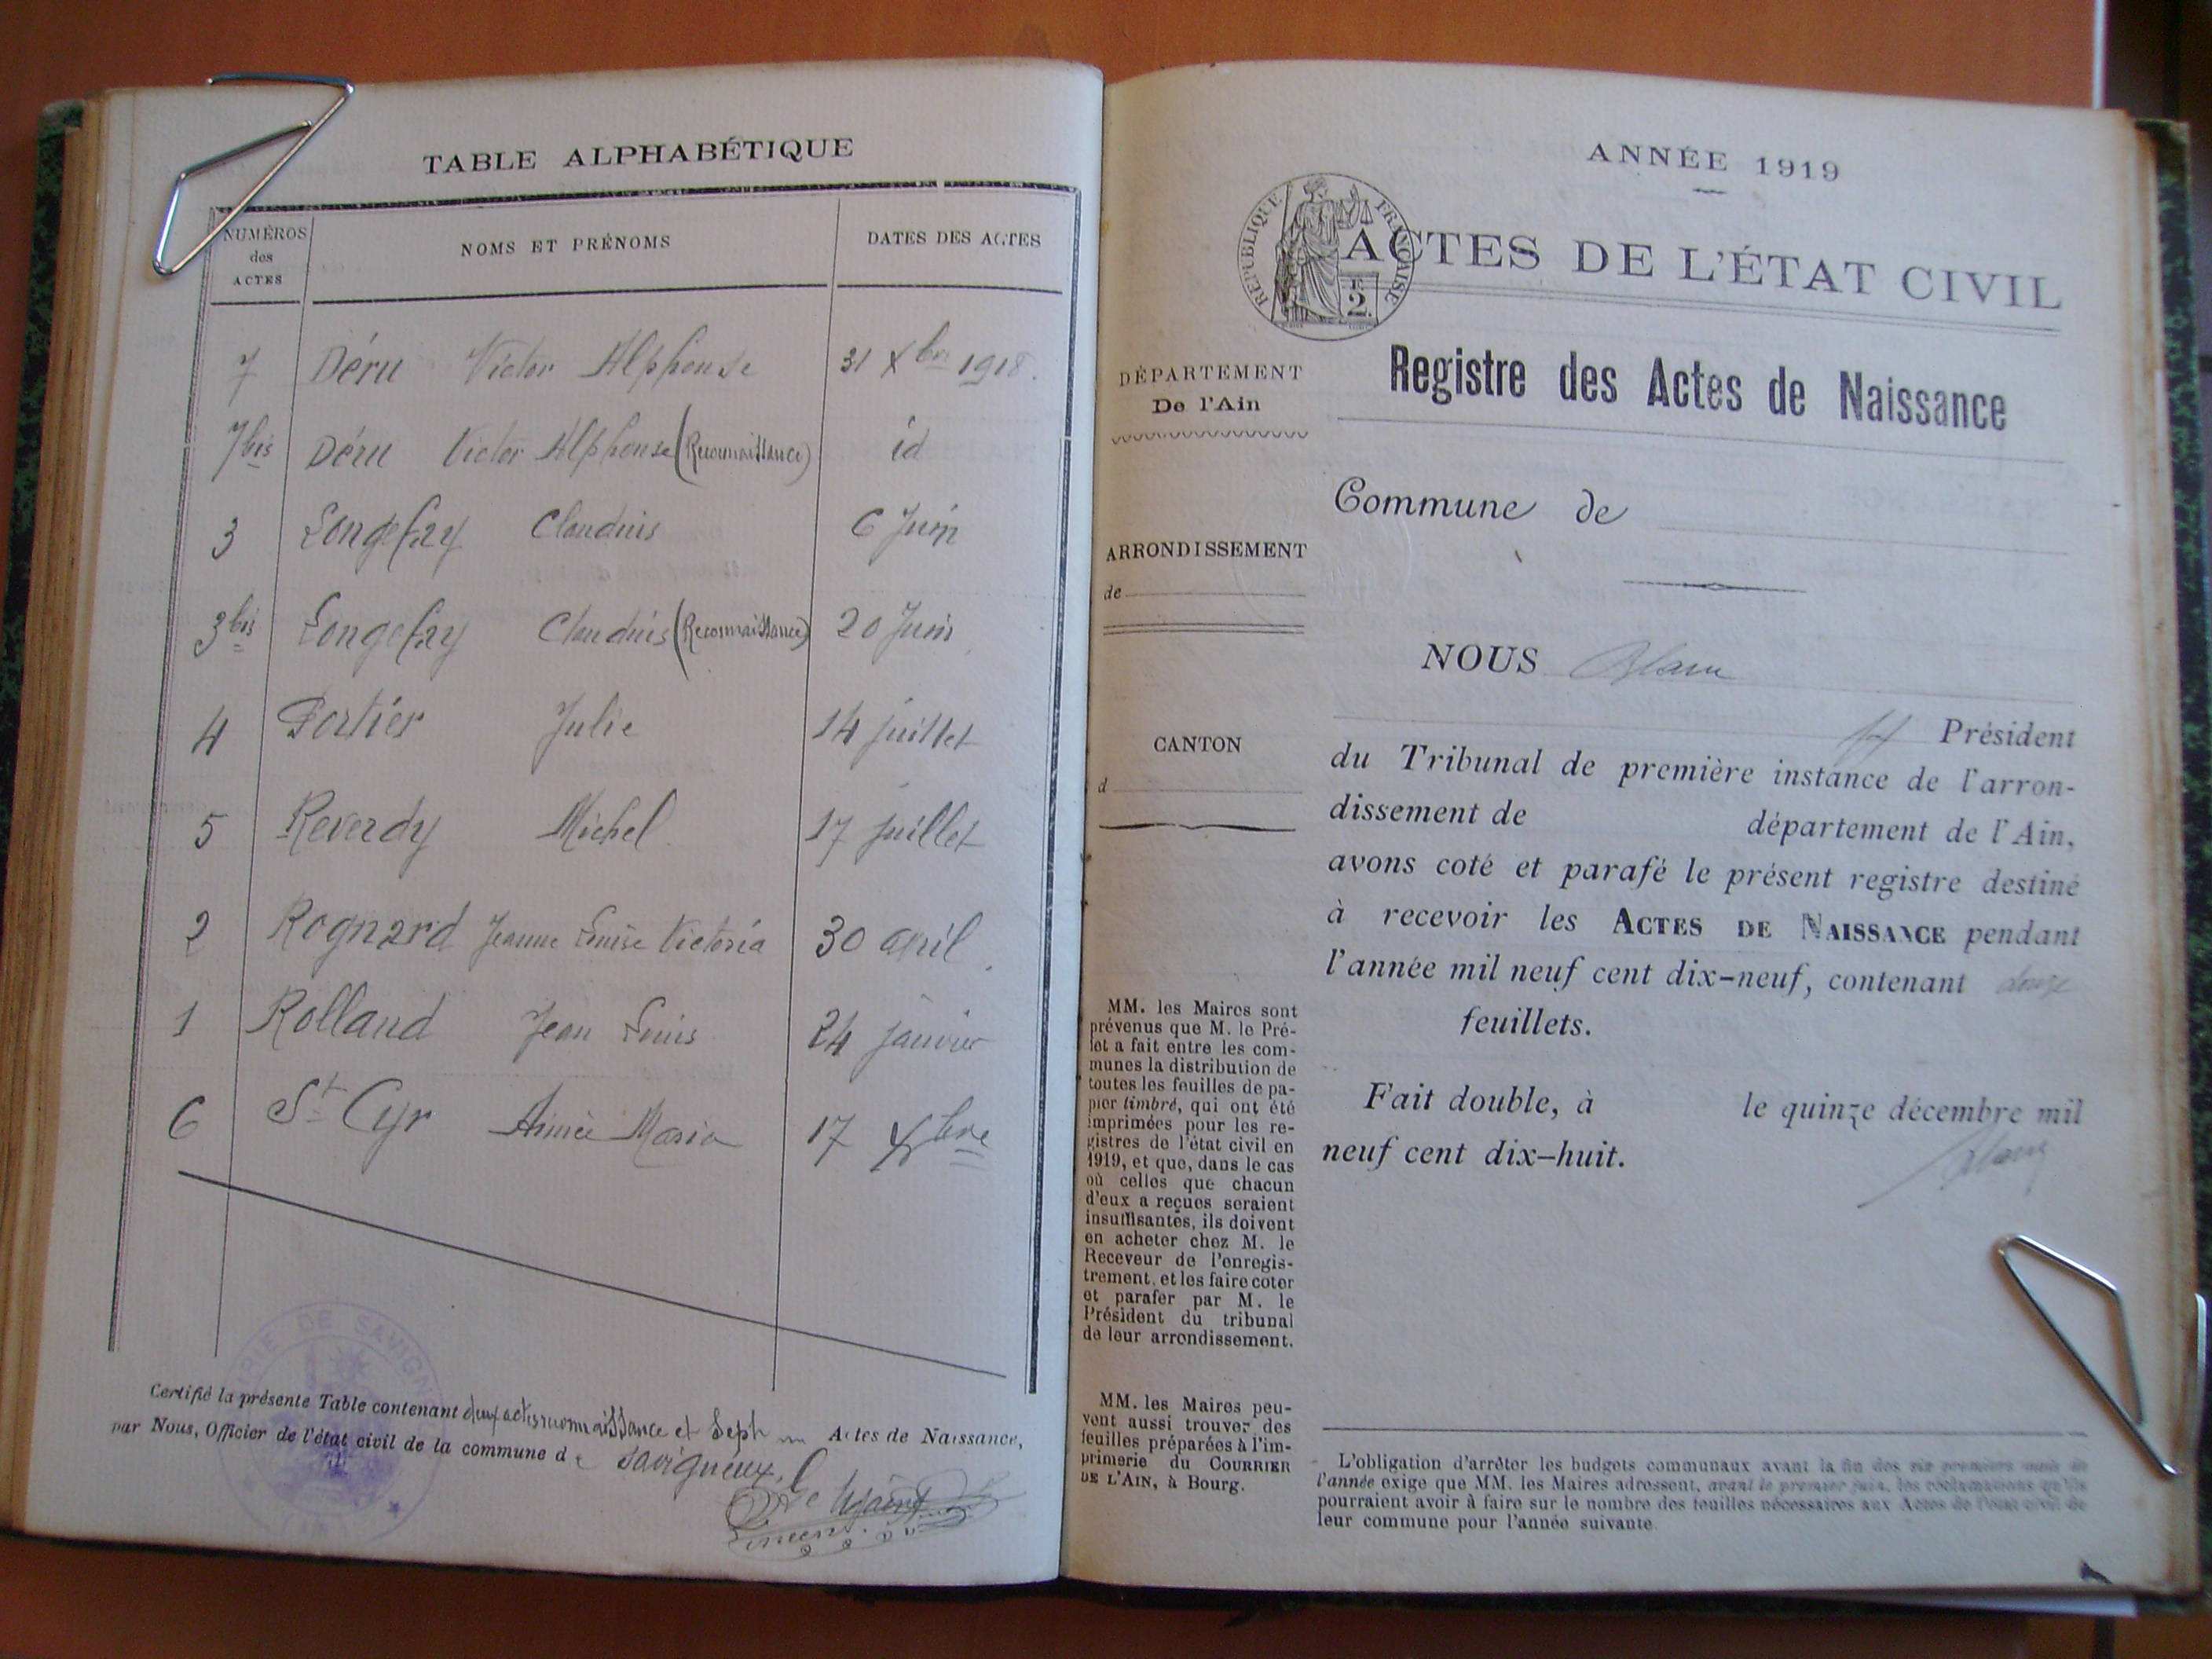 TABLE ALPHABÉTIQUE
NUMÉROS des ACTES
NOMS ET PRÉNOMS
DATES DES ACTES
7 Déru Victor Alphonse 31 Xbre 1918.
7bis Déru Victor Alphonse (Reconnaissance) id
3 Longefay Claudius 6 Juin
3bis Longefay Claudius (Reconnaissance) 20 Juin
4 Portier Julie 14 juillet
5 Reverdy Michel 17 juillet
2 Rognard Jeanne Louise Victoria 30 avril
1 Rolland Jean Louis 24 janvier
6 St Cyr Aimée Maria 17 Xbre
Certifié la présente Table contenant deux actes reconnaissance et Sept Actes de Naissance,
par Nous, Officier de l'état civil de la commune de Savigneux.
MAIRIE DE SAVIGN
ANNÉE 1919
RÉPUBLIQUE FRANÇAISE
2
ACTES DE L'ÉTAT CIVIL
Registre des Actes de Naissance
DÉPARTEMENT
De l'Ain
ARRONDISSEMENT
de
CANTON
d
MM. les Maires sont
prévenus que M. le Pré-
fet a fait entre les com-
munes la distribution de
toutes les feuilles de pa-
pier timbré, qui ont été
imprimées pour les re-
gistres de l'état civil en
1919, et que, dans le cas
où celles que chacun
d'eux a reçues seraient
insuffisantes, ils doivent
en acheter chez M. le
Receveur de l'enregis-
trement, et les faire coter
et parafer par M. le
Président du tribunal
de leur arrondissement.
MM. les Maires peu-
vent aussi trouver des
feuilles préparées à l'im-
primerie du COURRIER
DE L'AIN, à Bourg.
Commune de
NOUS
Président
du Tribunal de première instance de l'arron-
dissement de département de l'Ain,
avons coté et parafé le présent registre destiné
à recevoir les ACTES DE NAISSANCE pendant
l'année mil neuf cent dix-neuf, contenant douze
feuillets.
Fait double, à le quinze décembre mil
neuf cent dix-huit.
L'obligation d'arrêter les budgets communaux avant la fin des six premiers mois de
l'année exige que MM. les Maires adressent, avant le premier juin, les réclamations qu'ils
pourraient avoir à faire sur le nombre des feuilles nécessaires aux Actes de l'état civil de
leur commune pour l'année suivante.